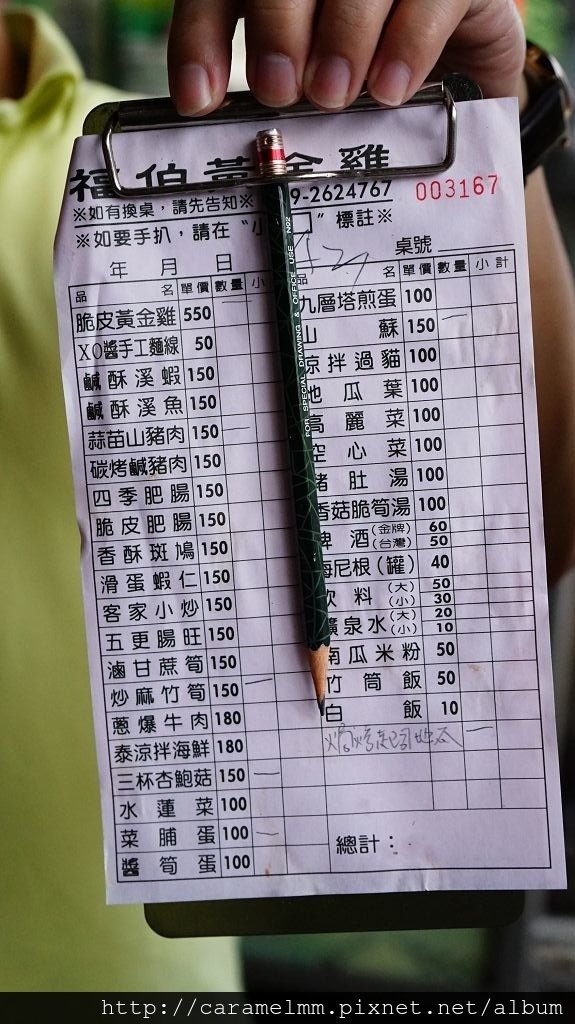 福伯黃金雞
9-2624767 003167
※如有換桌，請先告知※
※如要手扒，請在“小 ”標註※
年 月 日 桌號
品 名 單價 數量 小
脆皮黃金雞 550
XO醬手工麵線 50
鹹酥溪蝦 150
鹹酥溪魚 150
蒜苗山豬肉 150 一
碳烤鹹豬肉 150
四季肥腸 150
脆皮肥腸 150
香酥斑鳩 150
滑蛋蝦仁 150
客家小炒 150
五更腸旺 150
滷甘蔗筍 150
炒麻竹筍 150 一
蔥爆牛肉 180
泰涼拌海鮮 180
三杯杏鮑菇 150 一
水蓮菜 100
菜脯蛋 100 一
醬筍蛋 100
品 名 單價 數量 小計
九層塔煎蛋 100
山蘇 150 一
涼拌過貓 100
地瓜葉 100
高麗菜 100
空心菜 100
豬肚湯 100
香菇脆筍湯 100
啤酒(金牌) 60
(台灣) 50
海尼根(罐) 40
飲料(大) 50
(小) 30
礦泉水(大) 20
(小) 10
南瓜米粉 50
竹筒飯 50
白飯 10
總計：
FOR SPECIAL DRAWING & OFFICE USE NO2
http://caramelmm.pixnet.net/album